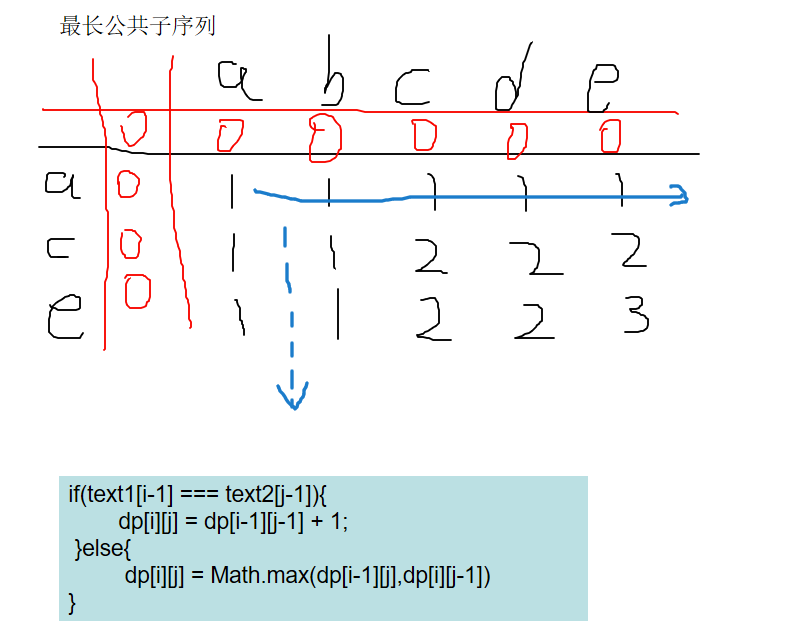 最长公共子序列
a b c d e
0 0 0 0 0 0
a 0 1 1 1 1 1
c 0 1 1 2 2 2
e 0 1 1 2 2 3
if(text1[i-1] === text2[j-1]){
dp[i][j] = dp[i-1][j-1] + 1;
}else{
dp[i][j] = Math.max(dp[i-1][j],dp[i][j-1])
}